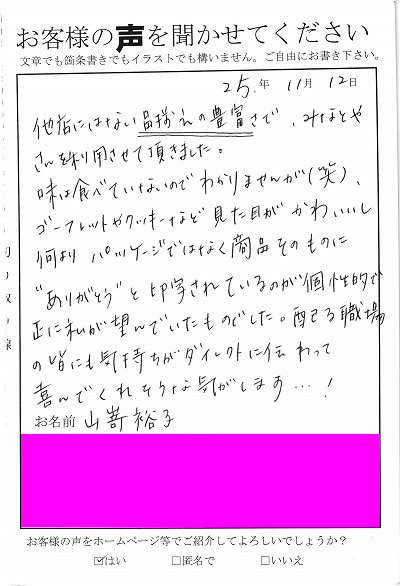 お客様の声を聞かせてください
文章でも箇条書きでもイラストでも構いません。ご自由にお書き下さい。
25.年 11月 12日
他店にはない品揃えの豊富さで、みなとや
さんを利用させて頂きました。
味は食べていないのでわかりませんが(笑)、
ゴーフレットやクッキーなど見た目がかわいいし
何より パッケージではなく商品そのものに
“ありがとう”と印字されているのが個性的で
正に私が望んでいたものでした。配る職場
の皆にも気持ちがダイレクトに伝わって
喜んでくれそうな気がします…!
お名前 山嵜裕子
お客様の声をホームページ等でご紹介してよろしいでしょうか？
☑はい □匿名で □いいえ